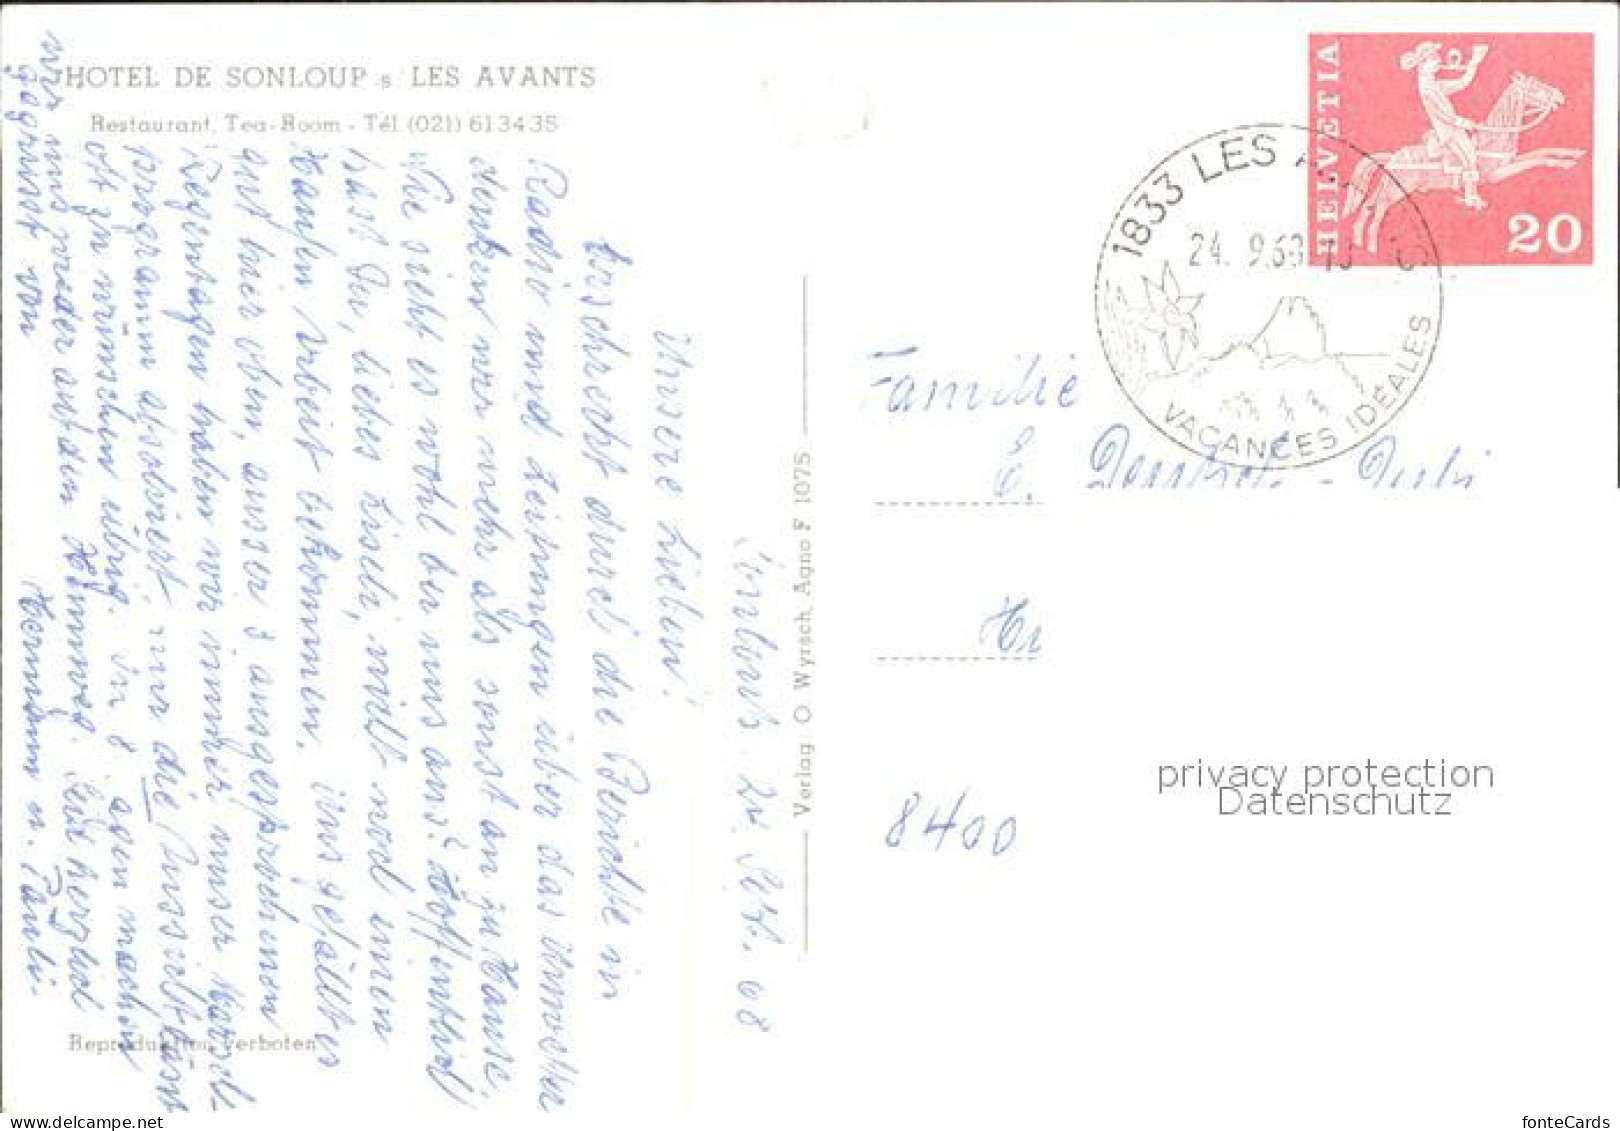 HOTEL DE SONLOUP s/ LES AVANTS
Restaurant, Tea-Room - Tél. (021) 61 34 35
Sonloup, 24. Sept. 68
Unsere Lieben!
Erschreckt durch die Berichte in
Radio und Zeitungen über das Unwetter
denken wir mehr als sonst an zu Hause.
Wie sieht es wohl bei uns aus? Hoffentlich
hast Du, liebes Liseli, nicht noch einen
Haufen Arbeit bekommen. Uns gefällt es
gut hier oben, ausser 3 ausgesprochenen
Regentagen haben wir immer unser Marsch-
programm absolviert, nur die Aussicht lässt
oft zu wünschen übrig. Am 8. Okt. machen
wir uns wieder auf den Heimweg. Seid herzlich
gegrüsst von
Hermann u. Pauli.
Reproduktion verboten
Verlag: O. Wyrsch, Agno F 1075
HELVETIA
20
1833 LES AVANTS
24. 9.68
VACANCES IDÉALES
Familie
E.
8400
privacy protection
Datenschutz
fonteCards